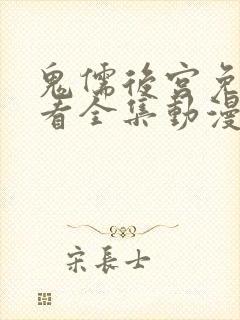 鬼儒後宮免
看全集動漫
宋長士